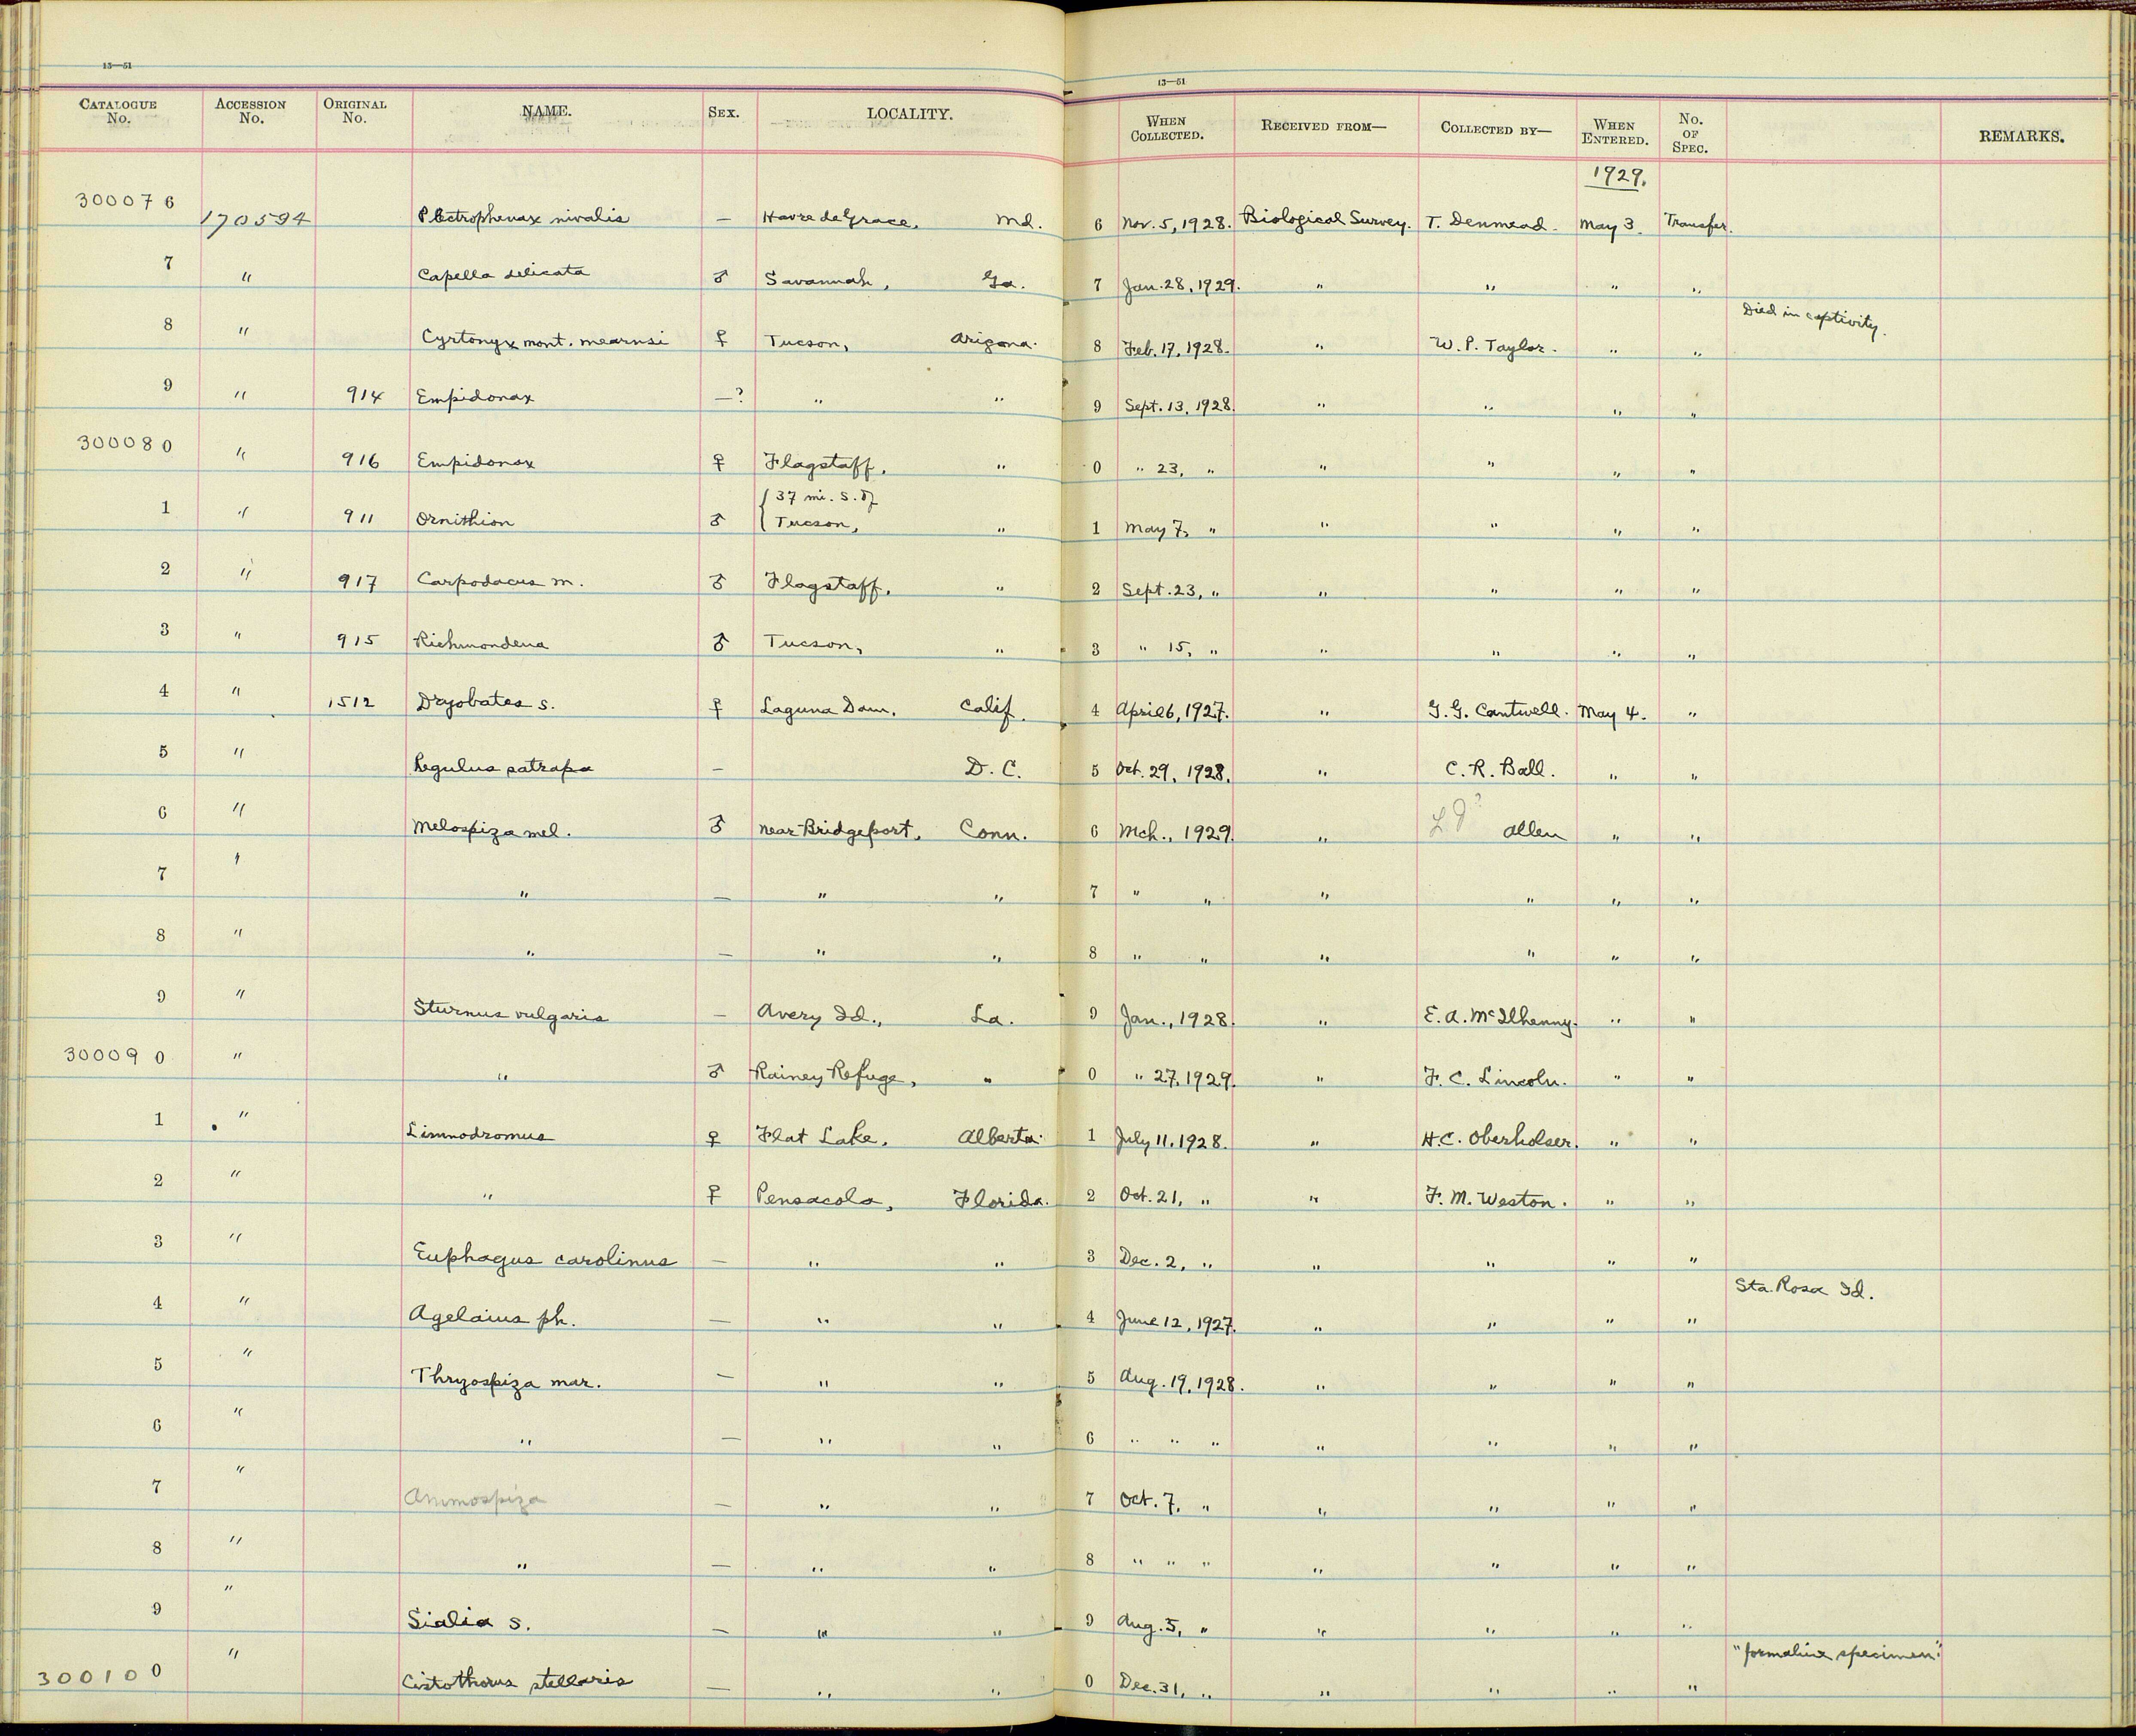 13—51
13—51
CATALOGUE No. ACCESSION No. ORIGINAL No. NAME. SEX. LOCALITY. WHEN COLLECTED. RECEIVED FROM— COLLECTED BY— WHEN ENTERED. No. OF SPEC. REMARKS.
1929.
300076 170594 Plectrophenax nivalis — Havre de Grace, Md. 6 Nov. 5, 1928. Biological Survey. T. Denmead. May 3. Transfer.
7 " Capella delicata ♂ Savannah, Ga. 7 Jan. 28, 1929. " " " "
8 " Cyrtonyx mont. mearnsi ♀ Tucson, Arizona. 8 Feb. 17, 1928. " W. P. Taylor. " " Died in captivity.
9 " 914 Empidonax —? " " 9 Sept. 13, 1928. " " " "
300080 " 916 Empidonax ♀ Flagstaff, " 0 " 23, " " " " "
1 " 911 Ornithion ♂ { 37 mi. S. of Tucson, " 1 May 7, " " " " "
2 " 917 Carpodacus m. ♂ Flagstaff, " 2 Sept. 23, " " " " "
3 " 915 Richmondena ♂ Tucson, " 3 " 15, " " " " "
4 " 1512 Dryobates s. ♀ Laguna Dam, Calif. 4 April 6, 1927. " G. G. Cantwell. May 4. "
5 " Regulus satrapa — D. C. 5 Oct. 29, 1928. " C. R. Ball. " "
6 " Melospiza mel. ♂ near Bridgeport, Conn. 6 Mch., 1929. " Allen " "
7 " " — " " 7 " " " " " "
8 " " — " " 8 " " " " " "
9 " Sturnus vulgaris — Avery Id., La. 9 Jan., 1928. " E. A. McIlhenny. " "
300090 " " ♂ Rainey Refuge, " 0 " 27, 1929. " F. C. Lincoln. " "
1 " Limnodromus ♀ Flat Lake, Alberta. 1 July 11, 1928. " H. C. Oberholser. " "
2 " " ♀ Pensacola, Florida. 2 Oct. 21, " " F. M. Weston. " "
3 " Euphagus carolinus — " " 3 Dec. 2, " " " " "
4 " Agelaius ph. — " " 4 June 12, 1927. " " " " Sta. Rosa Id.
5 " Thryospiza mar. — " " 5 Aug. 19, 1928. " " " "
6 " " — " " 6 " " " " " " "
7 " Ammospiza — " " 7 Oct. 7, " " " " "
8 " " — " " 8 " " " " " " "
9 " Sialia s. — " " 9 Aug. 5, " " " " "
300100 " Cistothorus stellaris — " " 0 Dec. 31, " " " " " "formaline specimen."